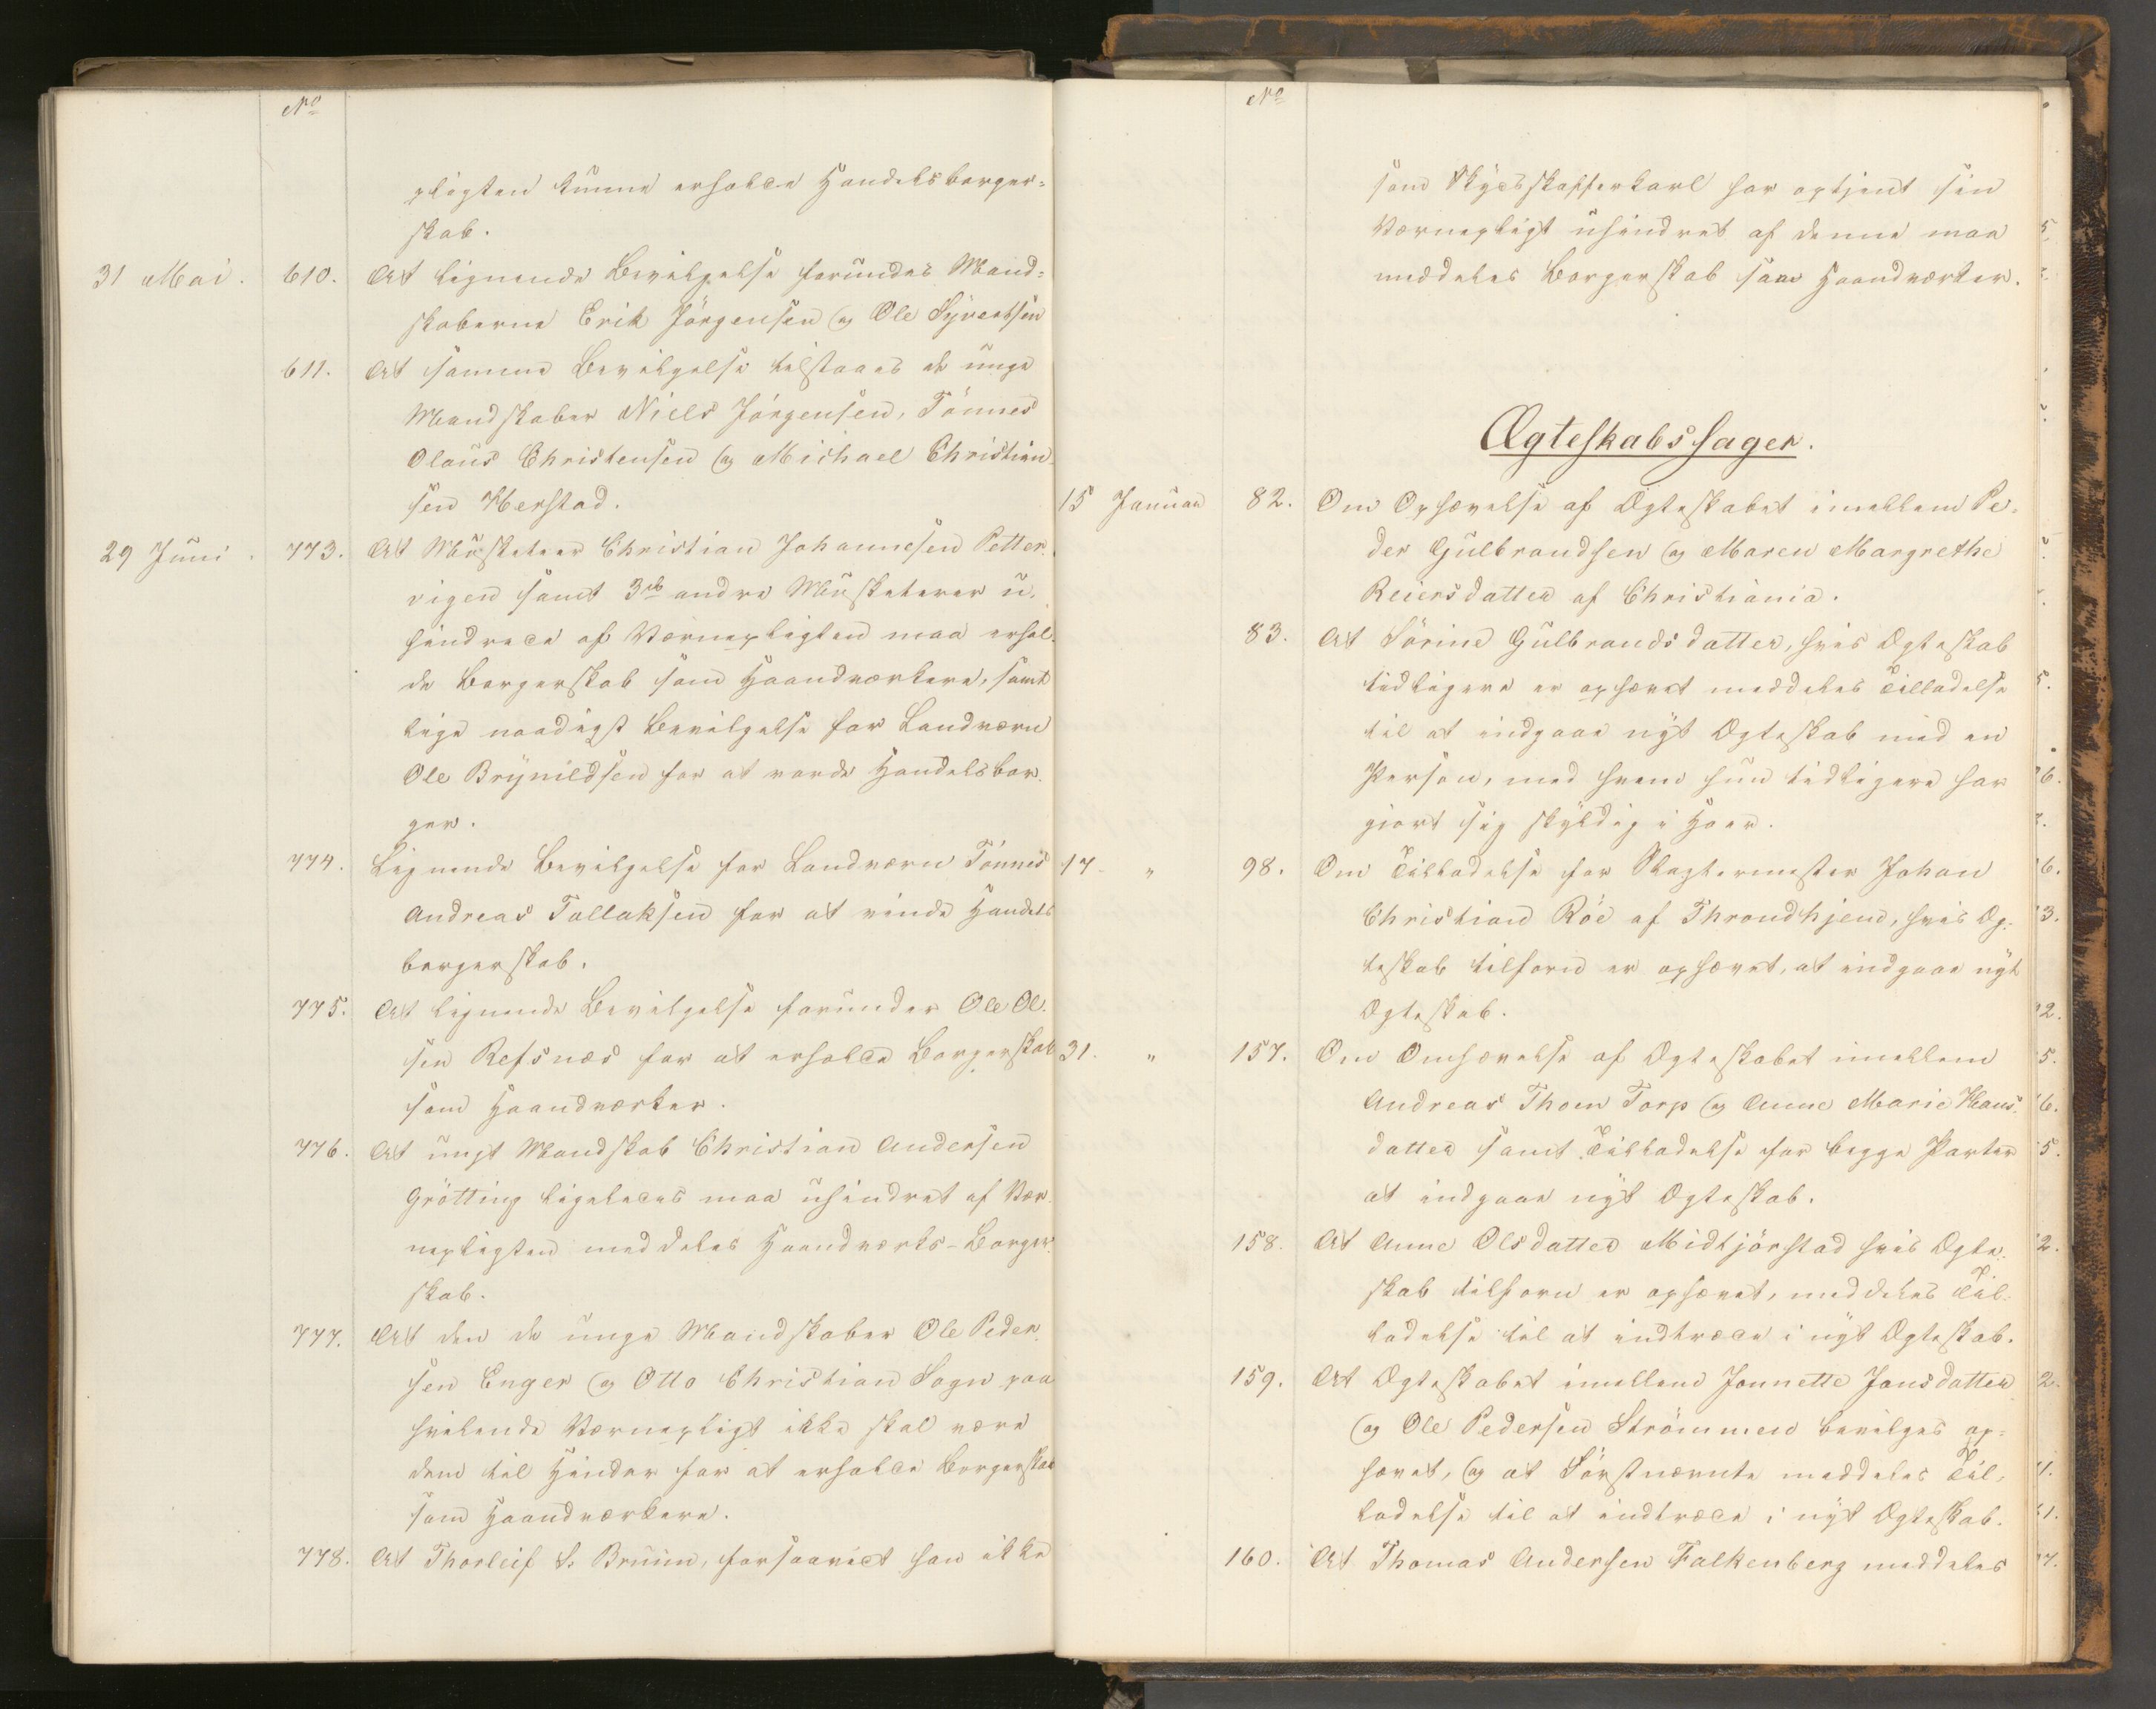 No
pligten kunne erholde Handelsborger=
skab.
31 Mai. 610. At lignende Bevilgelse forundes Mand=
skaberne Erik Jörgensen og Ole Syvertsen
611. At samme Bevilgelse tilstaaes de unge
Mandskaber Niels Jörgensen, Tönnes
Olaus Christensen og Michael Christian-
sen Herstad.
29 Juni. 773. At Musketeer Christian Johannesen Petter-
vigen samt 3de andre Musketerer u-
hindrede af Værnepligten maa erhol-
de Borgerskab som Haandværkere, samt
lige naadigst Bevilgelse for Landværn
Ole Brynildsen for at vorde Handelsbor-
ger.
774. Lignende Bevilgelse for Landværn Tönnes
Andreas Tollaksen for at vinde Handels
borgerskab.
775. At lignende Bevilgelse forundes Ole Ol-
sen Refsnæs for at erholde Borgerskab
som Haandværker.
776. At ungt Mandskab Christian Andersen
Grötting ligeledes maa uhindret af Vær-
nepligten meddeles Haandværks-Borger-
skab.
777. At den de unge Mandskaber Ole Peder-
sen Enger og Otto Christian Sogn paa
hvilende Værnepligt ikke skal være
dem til Hinder for at erholde Borgerskab
som Haandværkere.
778. At Thorleif S. Bruun, forsaavidt han ikke
No
som Skydsskafferkarl har optjent sin
Værnepligt uhindret af denne maa
meddeles Borgerskab som Haandværker.
Ægteskabssager.
15 Januar 82. Om Ophævelse af Ægteskabet imellem Pe-
der Gulbrandsen og Maren Margrethe
Reiersdatter af Christiania.
83. At Sörine Gulbrandsdatter, hvis Ægteskab
tidligere er ophævet meddeles Tilladelse
til at indgaae nyt Ægteskab med en
Person, med hvem hun tidligere har
giort sig skyldig i Hoer.
17 " 98. Om Tilladelse for Slagtermester Johan
Christian Röe af Throndhjem, hvis Æg-
teskab tilforn er ophævet, at indgaae nyt
Ægteskab.
31. " 157. Om Omhævelse af Ægteskabet imellem
Andreas Thom Torp og Anne Marie Hans-
datter samt Tilladelse for begge Parter
at indgaae nyt Ægteskab.
158. At Anne Olsdatter Midtjörstad hvis Ægte-
skab tilforn er ophævet, meddeles Til-
ladelse til at indtræde i nyt Ægteskab.
159. At Ægteskabet imellem Jonnette Jansdatter
og Ole Pedersen Strömmen bevilges op=
hævet, og at Förstnævnte meddeles Til-
ladelse til at indtræde i nyt Ægteskab.
160. At Thomas Andersen Falkenberg meddeles